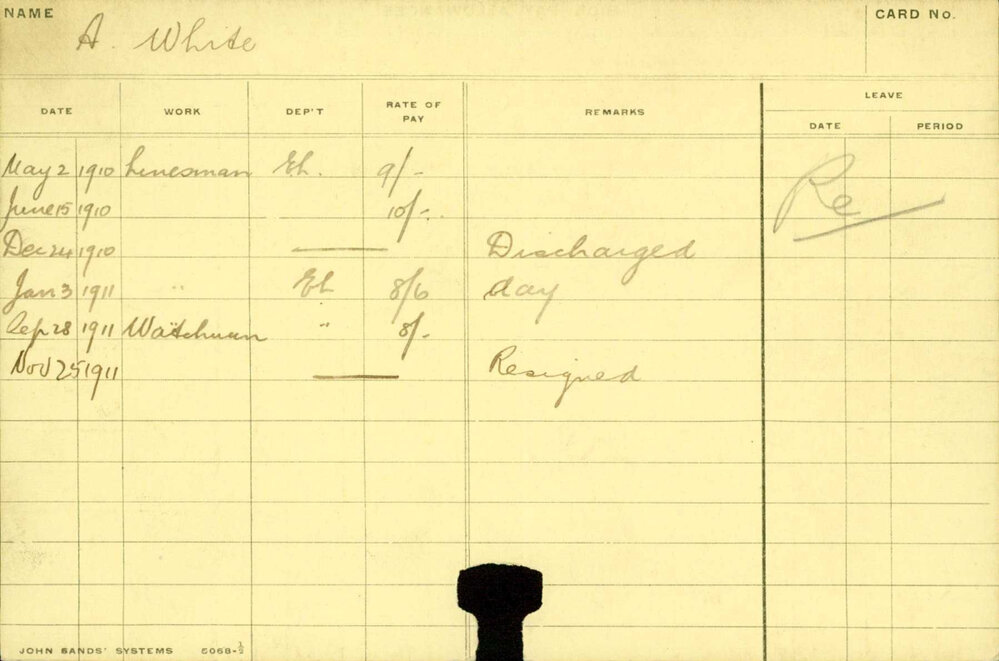 NAME A. White CARD No.
LEAVE
DATE WORK DEP'T RATE OF PAY REMARKS DATE PERIOD
May 2 1910 Linesman Eh. 9/- Re
June 15 1910 10/-
Dec 24 1910 Discharged
Jan 3 1911 " Eh 8/6 day
Sep 28 1911 Watchman " 8/-
Nov 25 1911 Resigned
JOHN SANDS' SYSTEMS 5068-½